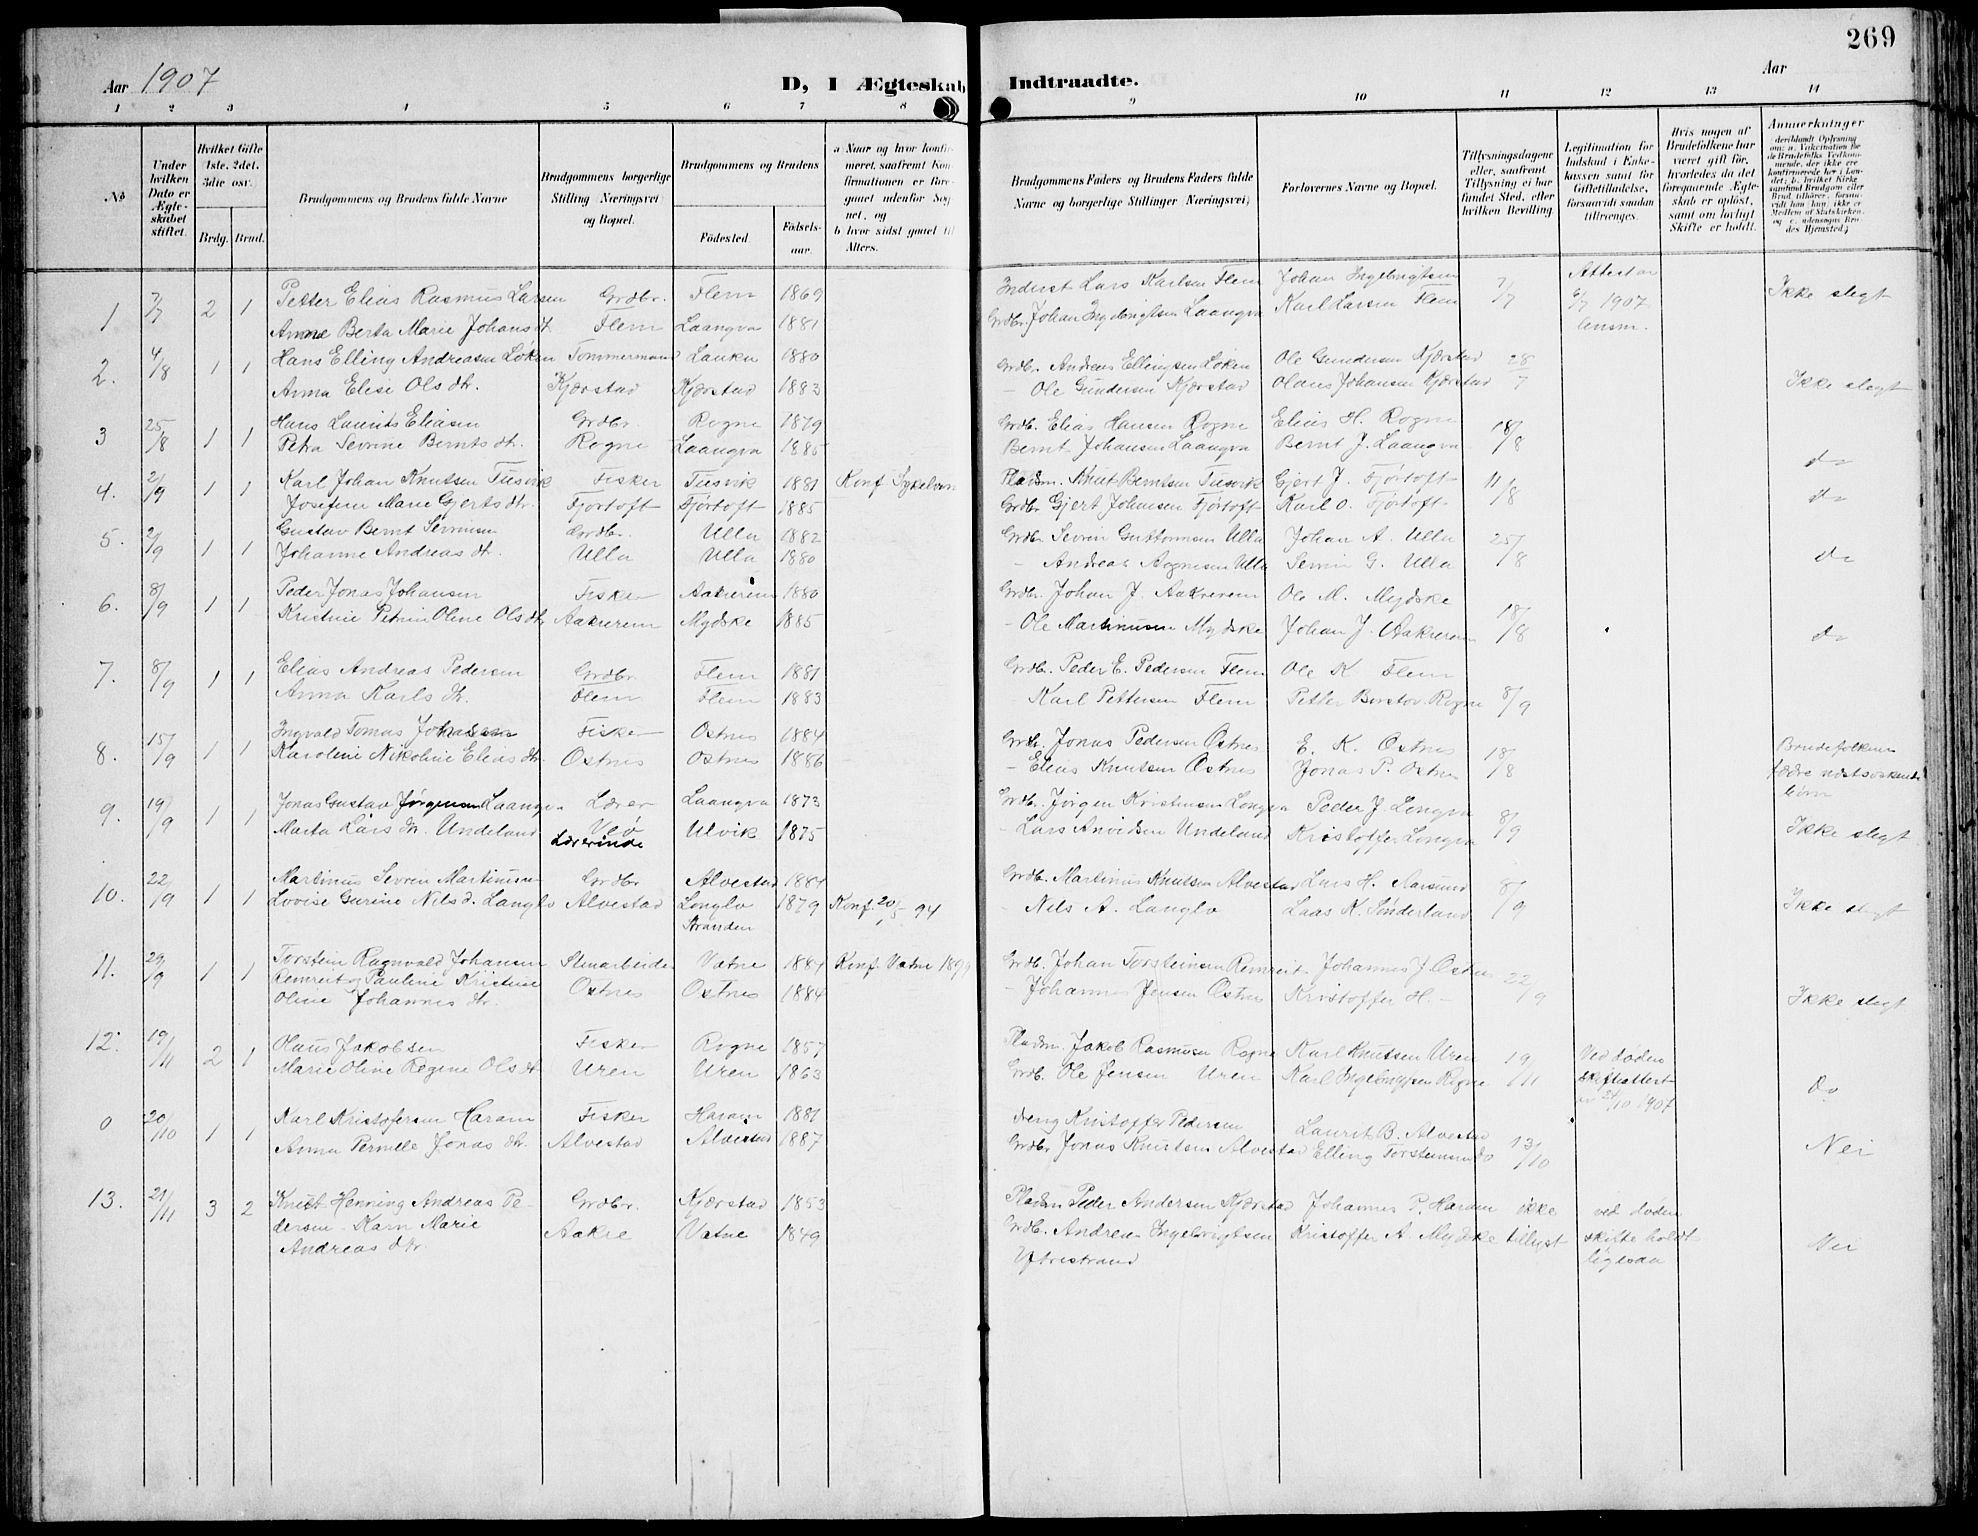 269
Aar 1907
D, 1 Ægteskab Indtraadte.
Aar
1 2 3 4 5 6 7 8 9 10 11 12 13 14
No
Under hvilken Dato er Ægteskabet stiftet.
Hvilket Gifte 1ste. 2det. 3die osv.
Brdg. Brud.
Brudgommens og Brudens fulde Navne
Brudgommens borgerlige Stilling Næringsvei og Bopæl.
Brudgommens og Brudens
Fødested
Fødsels-aar.
a Naar og hvor konfirmeret, saafremt Konfirmationen er foregaaet udenfor Sognet, og
b hvor sidst gaaet til Alters.
Brudgommens Faders og Brudens Faders fulde Navne og borgerlige Stillinger Næringsvei;
Forlovernes Navne og Bopæl.
Tillysningsdagene eller, saafremt Tillysning ei har fundet Sted, efter hvilken Bevilling.
Legitimation for Indskud i Enkekassen samt for Giftetilladelse, forsaavidt saadan tiltrænges.
Hvis nogen af Brudefolkene har været gift før, hvorledes da det foregaaende Ægteskab er opløst, samt om lovligt Skifte er holdt.
Anmerkninger
1 7/7 2 1 Petter Elias Rasmus Larsen Grdbr. Flem 1869 Inderst Lars Karlsen Flem Johan Ingebrigtsen 7/7 Attest av Ikke slegt
Anne Berta Marie Johans dt. Flem Laangva 1881 Grdbr Johan Ingebrigtsen Laangva Karl Larsen Flem 6/7 1907 lensm.
2. 4/8 1 1 Hans Elling Andreasen Løken Tommermand Lauka 1880 Grdbr. Andreas Ellingsen Løken Ole Gundersen Kjærstad 28/7
Anna Elise Ols dtr. Kjærstad Kjærstad 1883 - Ole Gundersen Kjærstad Olaus Johansen Kjærstad Ikke slegt
3 25/8 1 1 Hans Laurits Eliasen Grdbr. Rogne 1879 Grdb. Elias Hansen Rogne Elias H. Rogne 18/8
Petra Sevrine Bernts dtr. Rogne Laangva 1885 Bernt Johansen Laangva Bernt J. Laangva do
4. 2/9 1 1 Karl Johan Knutsen Tusvik Fisker Tusvik 1881 Konf. Sykelven Pladsm. Knut Berntsen Tusvik Gjert J. Fjørtoft 11/8
Josefine Marie Gjerts dtr. Fjørtoft Fjørtoft 1885 Grdbr Gjert Johansen Fjørtoft Karl O. Fjørtoft do
5. 2/9 1 1 Gustav Bernt Sevrinsen Grdbr. Ulla 1882 Grdbr. Sevrin Guttormsen Ulla Johan A. Ulla 25/8
Johanne Andreas dtr. Ulla Ulla 1880 - Andreas Aagnesen Ulla Sevrin G. Ulla do
6. 8/9 1 1 Peder Jonas Johansen Fisker Aakrerem 1880 Grdbr. Johan J. Aakrerem Ole M. Mydske 18/8
Kristine Petrine Oline Ols dtr Aakrerem Mydske 1885 - Ole Martinusen Mydske Johan J. Aakrerem do
7. 8/9 1 1 Elias Andreas Pedersen Grdbr Flem 1881 Grdbr. Peder E. Pedersen Flem Ole K Flem
Anna Karls dtr. Flem Flem 1883 Karl Pettersen Flem Petter Rogne 8/9
8. 15/9 1 1 Ingvald Tomas Johansen Fisker Ostnes 1884 Grdbr. Jonas Pedersen Østnes E. K. Østnes 18/8 Brudefolkenes
Karoline Nikoline Elias dtr. Østnes Ostnes 1886 - Elias Knutsen Østnes Jonas P. Østnes fædre næstsøskende børn
9. 19/9 1 1 Jonas Gustav Jørgensen Laangva Lærer Laangva 1873 Grdb. Jørgen Kristensen Longva Peder J. Longva 8/9
Marta Lars dtr. Undeland Lærerinde Ulvik 1875 - Lars Undeland Kristoffer Longva Ikke slegt
10. 22/9 1 1 Martinus Sevren Martinusen Grdbr Alvestad 1884 Grdb. Martinus Knutsen Alvestad Lars H. Aarsund 8/9
Lovise Gurine Nilsd. Langlo Alvestad Longlo Stranden 1879 Konf 20/5 94 Nils A. Langlo Laas K. Sønderland Ikke slegt
11. 29/9 1 1 Torstein Ragnvald Johansen Stenarbeider Vatne 1884 Konf. Vatne 1899 Grdb. Johan Torsteinsen Remreit Johannes J. Østnes 22/9
Remreit og Pauline Kristine Østnes Østnes 1884 - Johannes Jensen Østnes Kristoffer H. -
Oline Johannes dtr. Ikke slegt
12. 19/11 2 1 Olaus Jakobsen Fisker Rogne 1857 Pladsm. Jakob Rasmusen Rogne Karl Knutsen Uren 19/11 Ved døden
Marie Oline Regine Ols dt. Uren Uren 1863 Grdb. Ole Jensen Uren Karl Ingebrigtsen Rogne skifteattest 24/10 1907 Do
0 20/10 1 1 Karl Kristofersen Haram Fisker Haram 1881 Kristoffer Pedersen Laurit B. Alvestad 13/10
Anna Pernelle Jonas dtr. Alvestad Alvestad 1887 Grdbr Jonas Knutsen Alvestad Elling Torsteinsen do Nei
13. 21/11 3 2 Knut Henning Andreas Pe- Grdbr. Kjærstad 1853 Pladsm Peder Andersen Kjærstad Johannes P. Haram ikke ved døden
dersen - Karn Marie Aakre Vatne 1849 Grdb. Andreas Ingebrigtsen Kristoffer A. Mydske tillyst skifte holdt
Andreas dtr. Yttrestrand ligesaa Nei